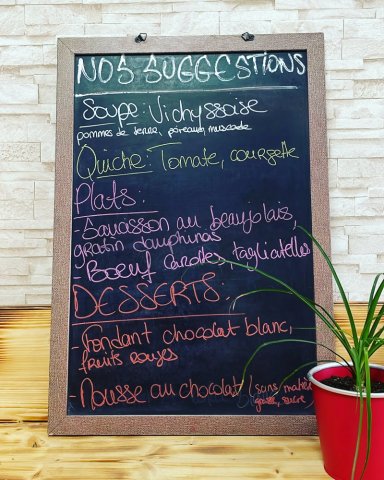 NOS SUGGESTIONS
Soupe: Vichyssoise
pommes de terre, poireaux, muscade
Quiche: Tomate, courgette
Plats:
- Sauvasson au beaujolais,
gratin dauphinois
- Boeuf carottes, tagliatelles
DESSERTS:
- Fondant chocolat blanc,
fruits rouges
- Mousse au chocolat (sans matière
grasse, sucre